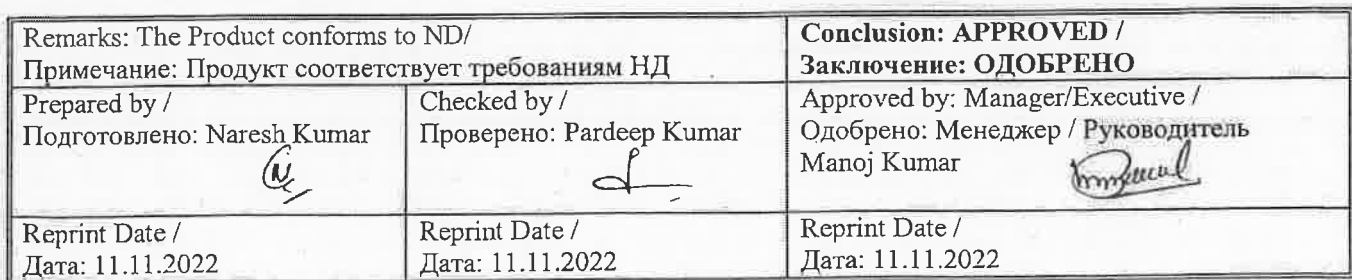 Remarks: The Product conforms to ND/
Примечание: Продукт соответствует требованиям НД
Conclusion: APPROVED /
Заключение: ОДОБРЕНО
Prepared by /
Подготовлено: Naresh Kumar
Checked by /
Проверено: Pardeep Kumar
Approved by: Manager/Executive /
Одобрено: Менеджер / Руководитель
Manoj Kumar
Reprint Date /
Дата: 11.11.2022
Reprint Date /
Дата: 11.11.2022
Reprint Date /
Дата: 11.11.2022